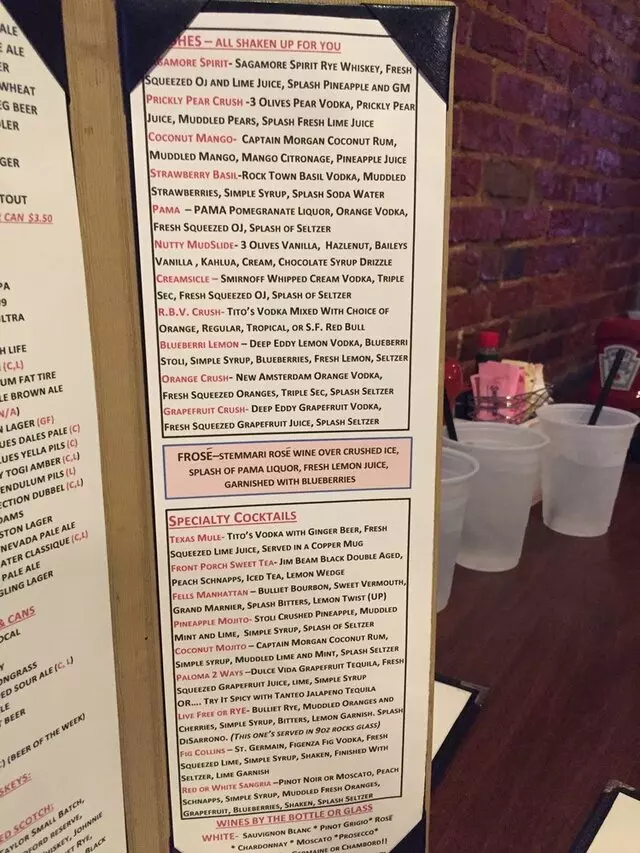 ALE
ALE
WHEAT
EG BEER
LER
GER
TOUT
CAN $3.50
PA
ULTRA
H LIFE
(C,L)
UM FAT TIRE
LE BROWN ALE
N/A)
N LAGER (GF)
UES DALES PALE (C)
UES YELLA PILS (C)
Y TOGI AMBER (C,L)
ENDULUM PILS (L)
ECTION DUBBEL (C,L)
DAMS
STON LAGER
NEVADA PALE ALE
ATER CLASSIQUE (C,L)
PALE ALE
GLING LAGER
& CANS
OCAL
NGRASS
ED SOUR ALE (C, L)
LE
T BEER
(BEER OF THE WEEK)
SKEYS:
ED SCOTCH:
AYLOR SMALL BATCH,
DFORD RESERVE,
HISKEY, JOHNNIE
T RYE,
BLACK
SHES – ALL SHAKEN UP FOR YOU
GAMORE SPIRIT- SAGAMORE SPIRIT RYE WHISKEY, FRESH
SQUEEZED OJ AND LIME JUICE, SPLASH PINEAPPLE AND GM
PRICKLY PEAR CRUSH -3 OLIVES PEAR VODKA, PRICKLY PEAR
JUICE, MUDDLED PEARS, SPLASH FRESH LIME JUICE
COCONUT MANGO- CAPTAIN MORGAN COCONUT RUM,
MUDDLED MANGO, MANGO CITRONAGE, PINEAPPLE JUICE
STRAWBERRY BASIL-ROCK TOWN BASIL VODKA, MUDDLED
STRAWBERRIES, SIMPLE SYRUP, SPLASH SODA WATER
PAMA – PAMA POMEGRANATE LIQUOR, ORANGE VODKA,
FRESH SQUEEZED OJ, SPLASH OF SELTZER
NUTTY MUDSLIDE- 3 OLIVES VANILLA, HAZLENUT, BAILEYS
VANILLA , KAHLUA, CREAM, CHOCOLATE SYRUP DRIZZLE
CREAMSICLE – SMIRNOFF WHIPPED CREAM VODKA, TRIPLE
SEC, FRESH SQUEEZED OJ, SPLASH OF SELTZER
R.B.V. CRUSH- TITO'S VODKA MIXED WITH CHOICE OF
ORANGE, REGULAR, TROPICAL, OR S.F. RED BULL
BLUEBERRI LEMON – DEEP EDDY LEMON VODKA, BLUEBERRI
STOLI, SIMPLE SYRUP, BLUEBERRIES, FRESH LEMON, SELTZER
ORANGE CRUSH- NEW AMSTERDAM ORANGE VODKA,
FRESH SQUEEZED ORANGES, TRIPLE SEC, SPLASH SELTZER
GRAPEFRUIT CRUSH- DEEP EDDY GRAPEFRUIT VODKA,
FRESH SQUEEZED GRAPEFRUIT JUICE, SPLASH SELTZER
FROSÉ–STEMMARI ROSÉ WINE OVER CRUSHED ICE,
SPLASH OF PAMA LIQUOR, FRESH LEMON JUICE,
GARNISHED WITH BLUEBERRIES
SPECIALTY COCKTAILS
TEXAS MULE- TITO'S VODKA WITH GINGER BEER, FRESH
SQUEEZED LIME JUICE, SERVED IN A COPPER MUG
FRONT PORCH SWEET TEA- JIM BEAM BLACK DOUBLE AGED,
PEACH SCHNAPPS, ICED TEA, LEMON WEDGE
FELLS MANHATTAN – BULLIET BOURBON, SWEET VERMOUTH,
GRAND MARNIER, SPLASH BITTERS, LEMON TWIST (UP)
PINEAPPLE MOJITO- STOLI CRUSHED PINEAPPLE, MUDDLED
MINT AND LIME, SIMPLE SYRUP, SPLASH OF SELTZER
COCONUT MOJITO – CAPTAIN MORGAN COCONUT RUM,
SIMPLE SYRUP, MUDDLED LIME AND MINT, SPLASH SELTZER
PALOMA 2 WAYS –DULCE VIDA GRAPEFRUIT TEQUILA, FRESH
SQUEEZED GRAPEFRUIT JUICE, LIME, SIMPLE SYRUP
OR.... TRY IT SPICY WITH TANTEO JALAPENO TEQUILA
LIVE FREE OR RYE- BULLIET RYE, MUDDLED ORANGES AND
CHERRIES, SIMPLE SYRUP, BITTERS, LEMON GARNISH. SPLASH
DISARRONO. (THIS ONE'S SERVED IN 9OZ ROCKS GLASS)
FIG COLLINS – ST. GERMAIN, FIGENZA FIG VODKA, FRESH
SQUEEZED LIME, SIMPLE SYRUP, SHAKEN, FINISHED WITH
SELTZER, LIME GARNISH
RED OR WHITE SANGRIA –PINOT NOIR OR MOSCATO, PEACH
SCHNAPPS, SIMPLE SYRUP, MUDDLED FRESH ORANGES,
GRAPEFRUIT, BLUEBERRIES, SHAKEN, SPLASH SELTZER
WINES BY THE BOTTLE OR GLASS
WHITE- SAUVIGNON BLANC * PINOT GRIGIO* ROSE
* CHARDONNAY * MOSCATO *PROSECCO*
GERMAINE OR CHAMBORD!!
HEINZ